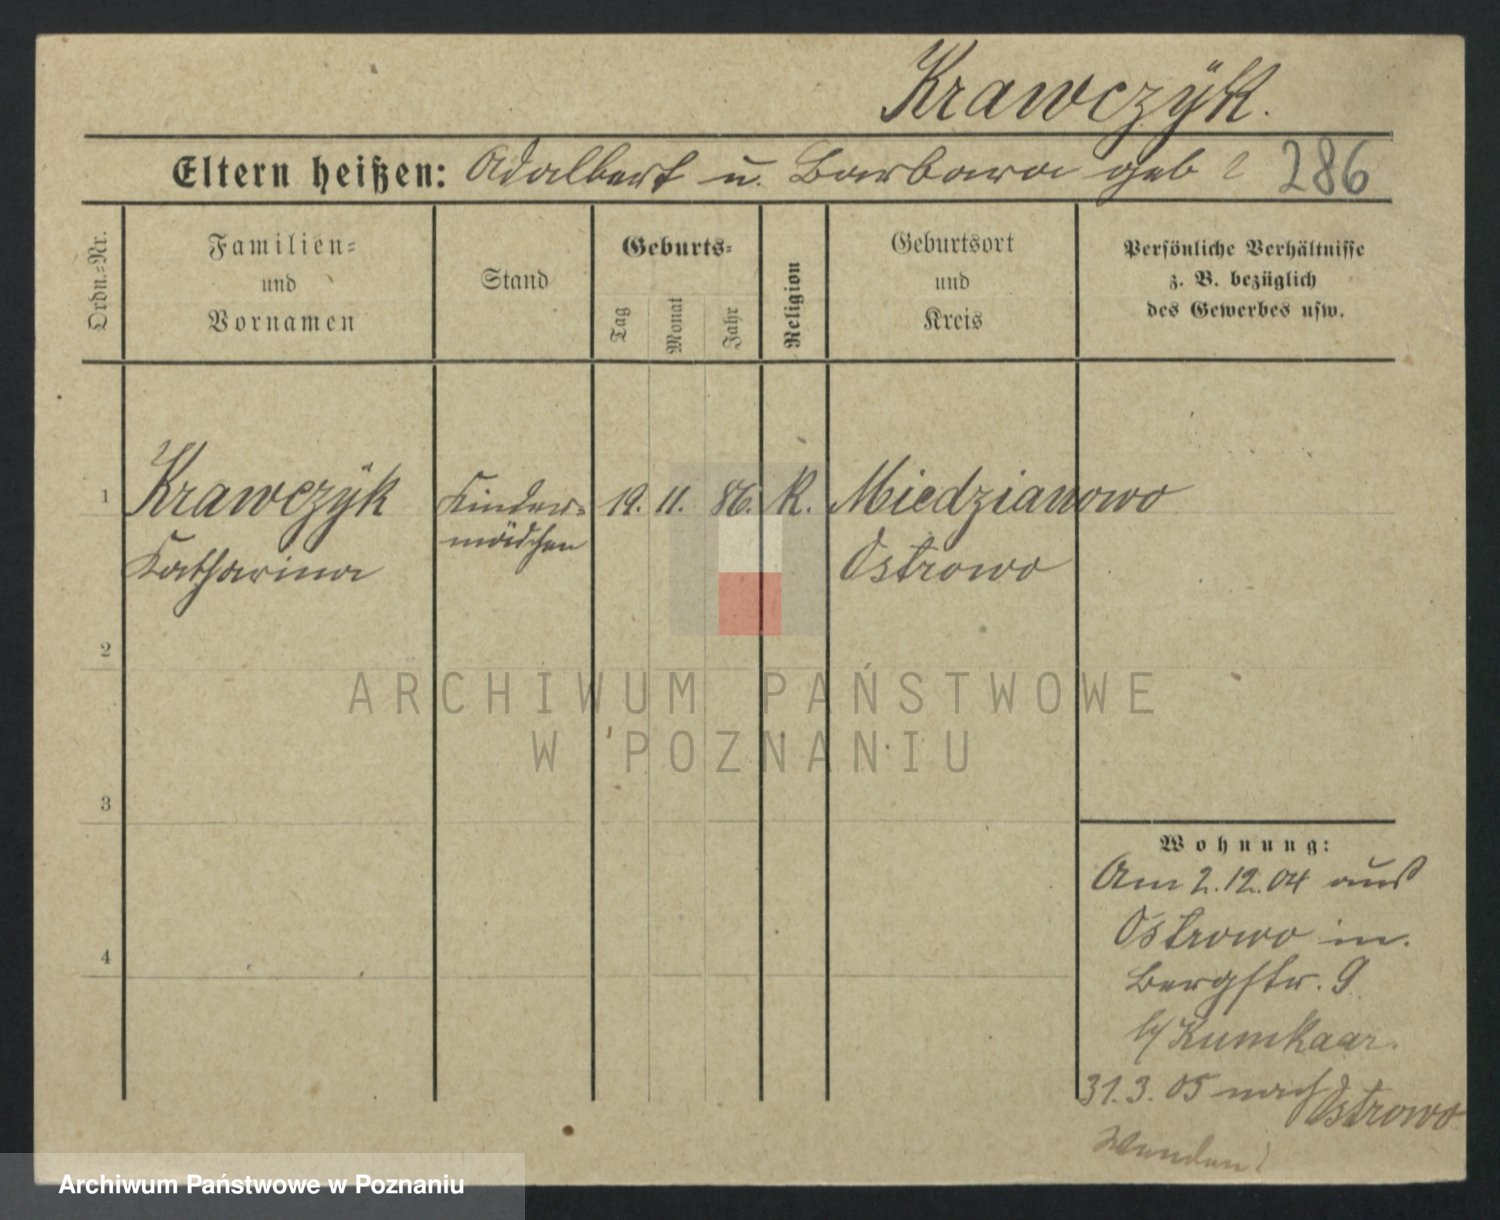 Krawczÿk.
Eltern heißen: Adalbert u. Barbara geb ? 286
Ordn.-Nr.
Familien- und Vornamen
Stand
Geburts-
Tag
Monat
Jahr
Religion
Geburtsort und Kreis
Persönliche Verhältnisse z. B. bezüglich des Gewerbes usw.
1 Krawczÿk Kinder- 19. 11. 86. K. Miedzianowo
Katharina mädchen Ostrowo
2
ARCHIWUM PAŃSTWOWE
W POZNANIU
3
Wohnung:
Am 2.12.04 aus
Ostrowo in.
Bergstr. 9
b/ Kumkaar.
4
31.3.05 nach Ostrowo
Wenden!
Archiwum Państwowe w Poznaniu